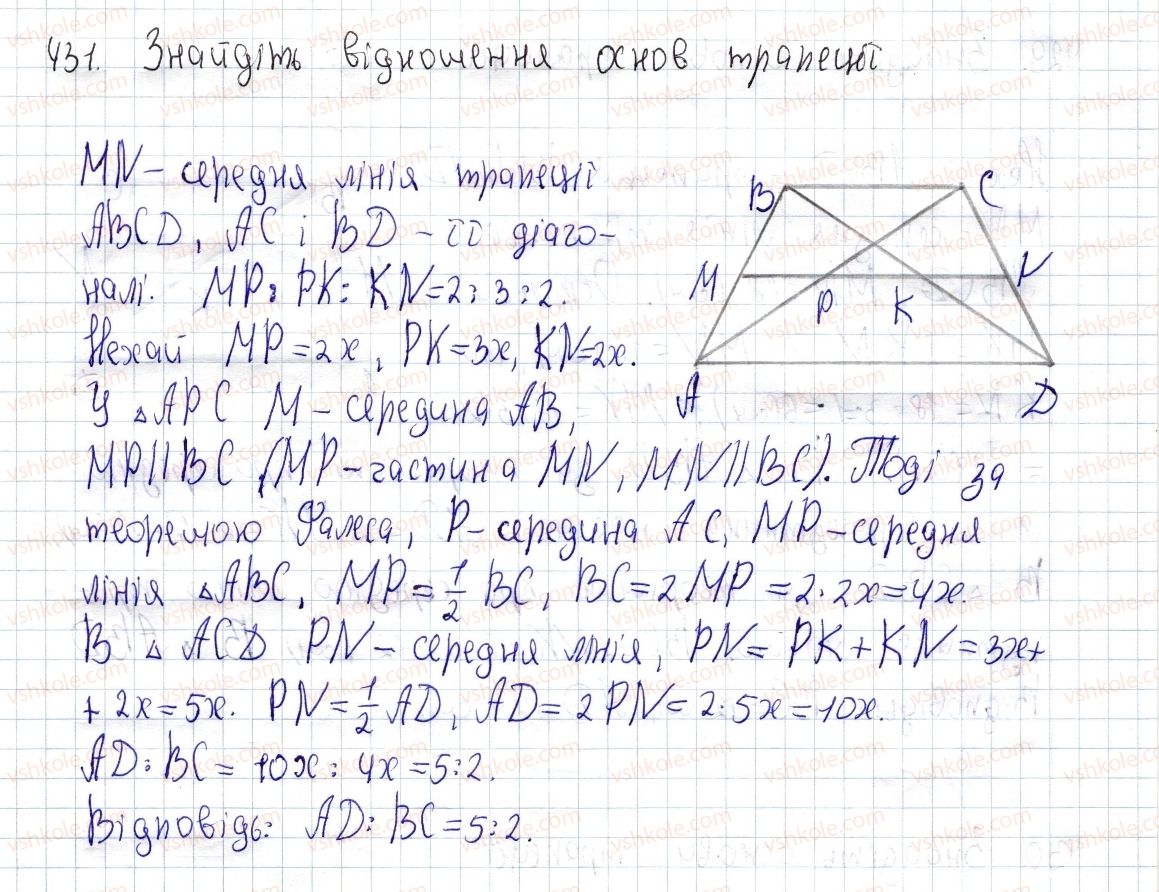 431. Знайдіть відношення основ трапеції
MN – середня лінія трапеції
ABCD, AC і BD – її діаго-
налі. MP : PK : KN = 2 : 3 : 2.
Нехай MP = 2x, PK = 3x, KN = 2x.
У △ APC M – середина AB,
MP || BC (MP – частина MN, MN || BC). Тоді за
теоремою Фалеса, P – середина AC, MP – середня
лінія △ ABC, MP = 1/2 BC, BC = 2 MP = 2 · 2x = 4x.
В △ ACD PN – середня лінія, PN = PK + KN = 3x +
+ 2x = 5x. PN = 1/2 AD, AD = 2 PN = 2 · 5x = 10x.
AD : BC = 10x : 4x = 5 : 2.
Відповідь: AD : BC = 5 : 2.
B C
M P K N
A D
vshkole.com